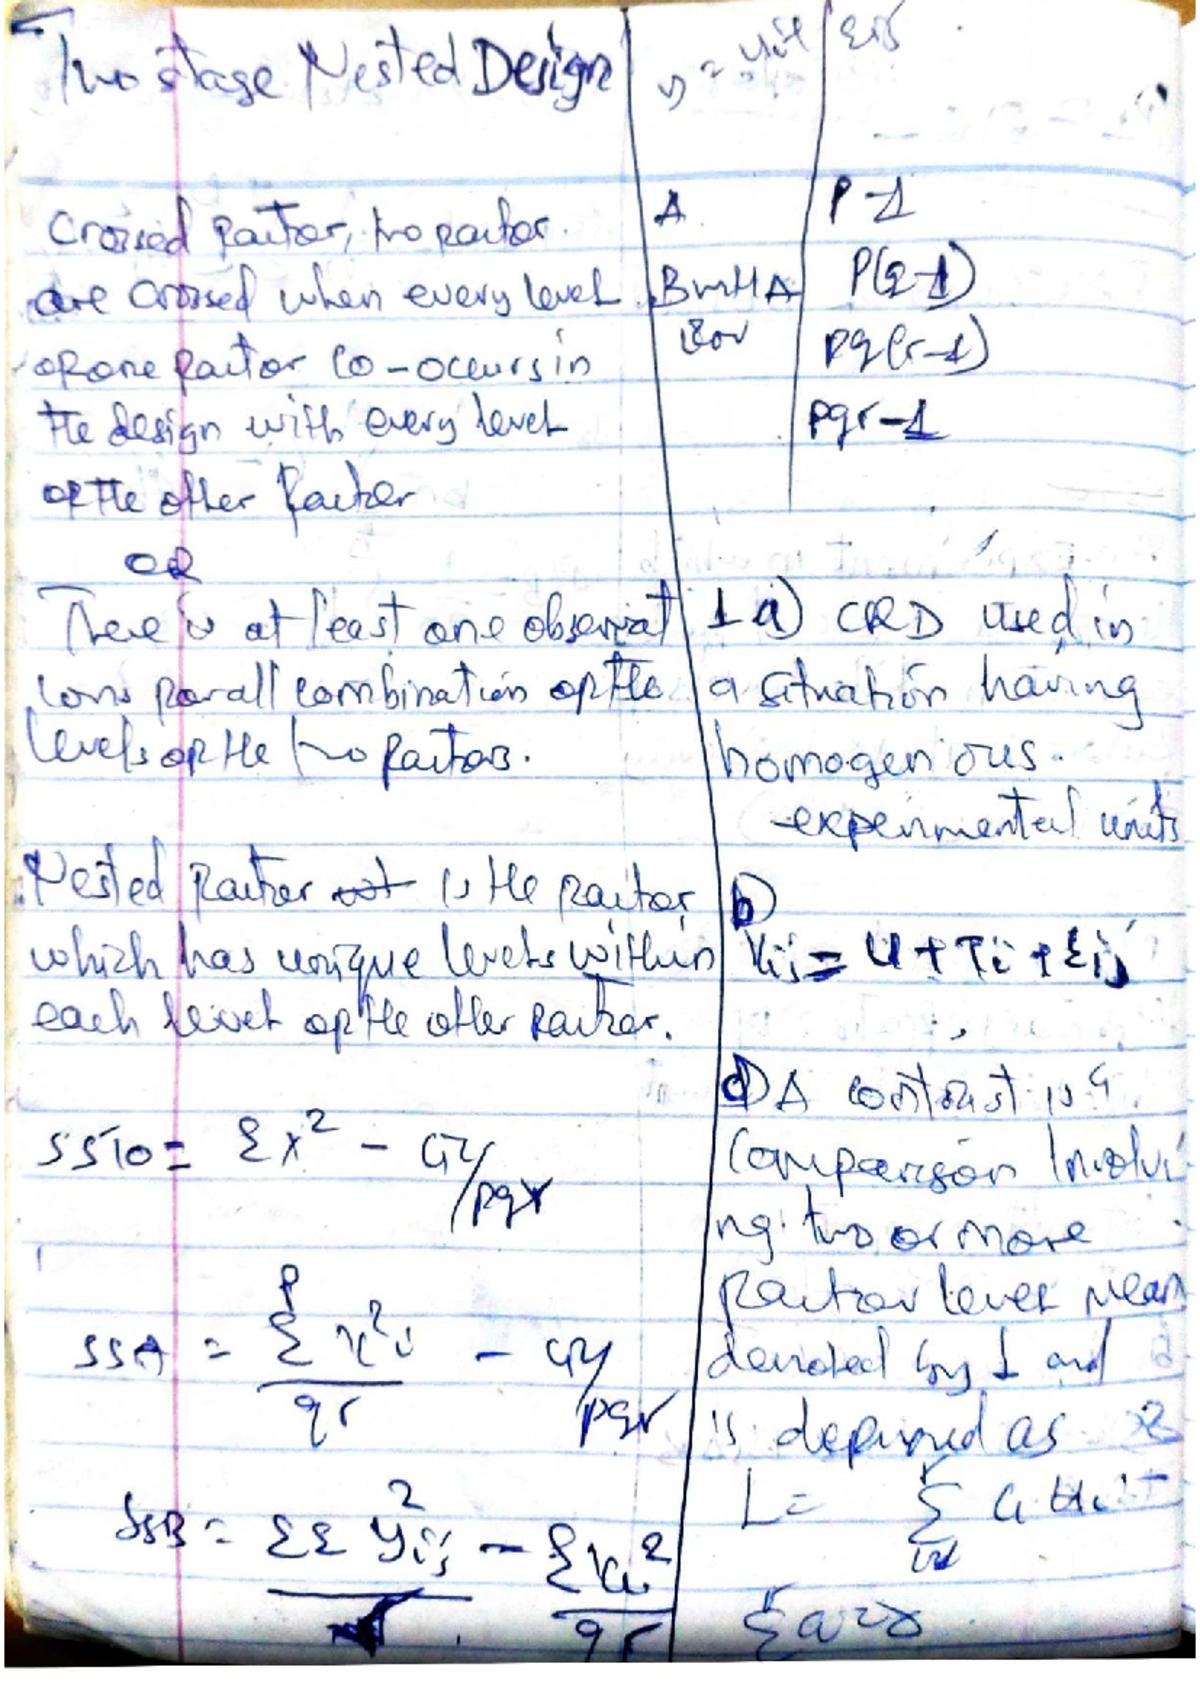 Two stage Nested Design
Crossed factor, two factor
are crossed when every level
of one factor co-occurs in
the design with every level
of the other factor
OR
There is at least one observat
ions for all combination of the
levels of the two factors.
Nested factor is the factor
which has unique levels within
each level of the other factor.
SSTo = Σx² - GY/pqr
SSA = Σ^p x²i / qr - GY/pqr
SSB = ΣΣ y²ij / r - Σxi² / qr
A P-1
B within A P(q-1)
Error pq(r-1)
pqr-1
1 a) CRD used in
a situation having
homogenious
experimental units
b)
Yij = u + τi + εij
d) A contrast is a
comparison involvi
ng two or more
factor level mean
denoted by L and
is defined as
L =